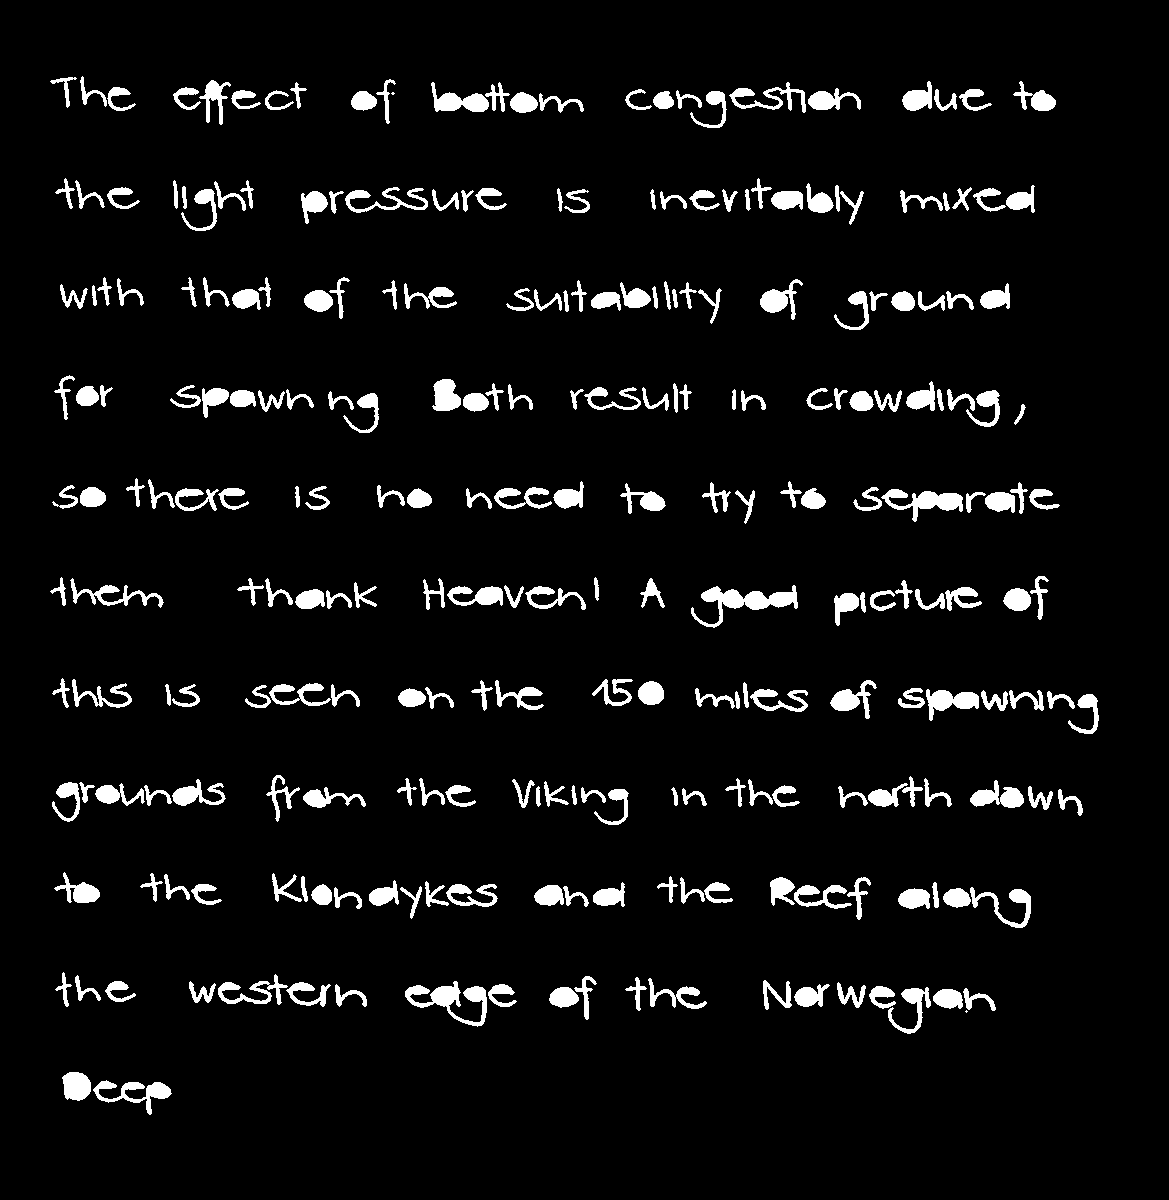 The effect of bottom congestion due to
the light pressure is inevitably mixed
with that of the suitability of ground
for spawning Both result in crowding,
so there is no need to try to separate
them thank Heaven! A good picture of
this is seen on the 150 miles of spawning
grounds from the Viking in the north down
to the Klondykes and the Reef along
the western edge of the Norwegian
Deep